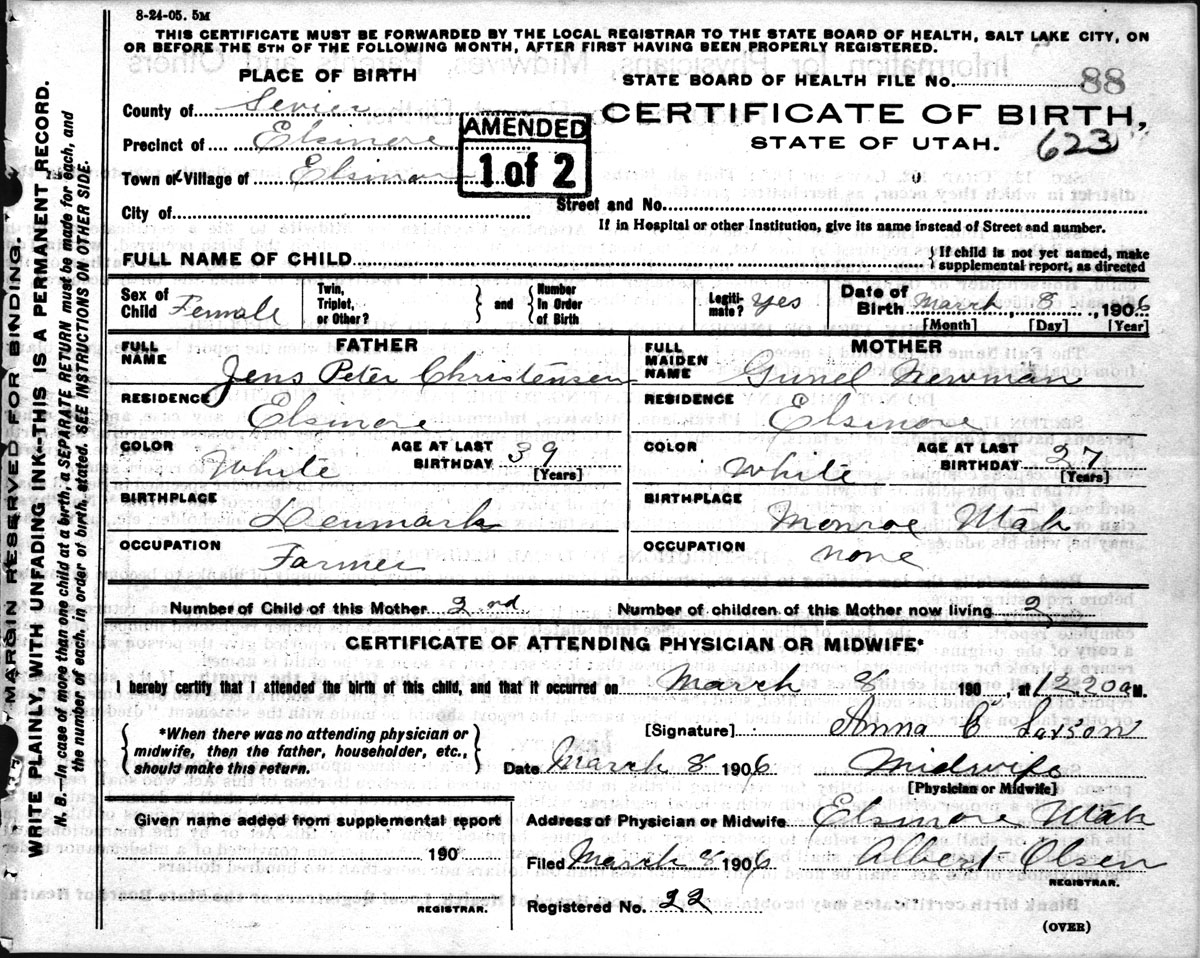 8-24-05. 5M
THIS CERTIFICATE MUST BE FORWARDED BY THE LOCAL REGISTRAR TO THE STATE BOARD OF HEALTH, SALT LAKE CITY, ON
OR BEFORE THE 5TH OF THE FOLLOWING MONTH, AFTER FIRST HAVING BEEN PROPERLY REGISTERED.
MARGIN RESERVED FOR BINDING.
WRITE PLAINLY, WITH UNFADING INK--THIS IS A PERMANENT RECORD.
N. B.—In case of more than one child at a birth, a SEPARATE RETURN must be made for each, and
the number of each, in order of birth, stated. SEE INSTRUCTIONS ON OTHER SIDE.
PLACE OF BIRTH
County of Sevier
Precinct of Elsinore
Town or Village of Elsinore
City of
AMENDED
1 of 2
STATE BOARD OF HEALTH FILE No. 88
CERTIFICATE OF BIRTH,
STATE OF UTAH. 623
Street and No.
If in Hospital or other Institution, give its name instead of Street and number.
FULL NAME OF CHILD { If child is not yet named, make
supplemental report, as directed
Sex of Child Female
Twin, Triplet, or Other? } and { Number In Order of Birth
Legiti- mate? Yes
Date of Birth March, 8, 1906
[Month] [Day] [Year]
FATHER
FULL NAME Jens Peter Christensen
RESIDENCE Elsinore
COLOR White AGE AT LAST BIRTHDAY 39 [Years]
BIRTHPLACE Denmark
OCCUPATION Farmer
MOTHER
FULL MAIDEN NAME Gunel Newman
RESIDENCE Elsinore
COLOR White AGE AT LAST BIRTHDAY 27 [Years]
BIRTHPLACE Monroe Utah
OCCUPATION none
Number of Child of this Mother 2ond Number of children of this Mother now living 2
CERTIFICATE OF ATTENDING PHYSICIAN OR MIDWIFE*
I hereby certify that I attended the birth of this child, and that it occurred on March 8 190 , at 12.20 a M.
{ *When there was no attending physician or
midwife, then the father, householder, etc.,
should make this return. }
[Signature] Anna C Larson
Date March 8 1906 Midwife
[Physician or Midwife]
Given name added from supplemental report
190
REGISTRAR.
Address of Physician or Midwife Elsinore Utah
Filed March 8 1906 Albert Olsen
REGISTRAR.
Registered No. 22
(OVER)